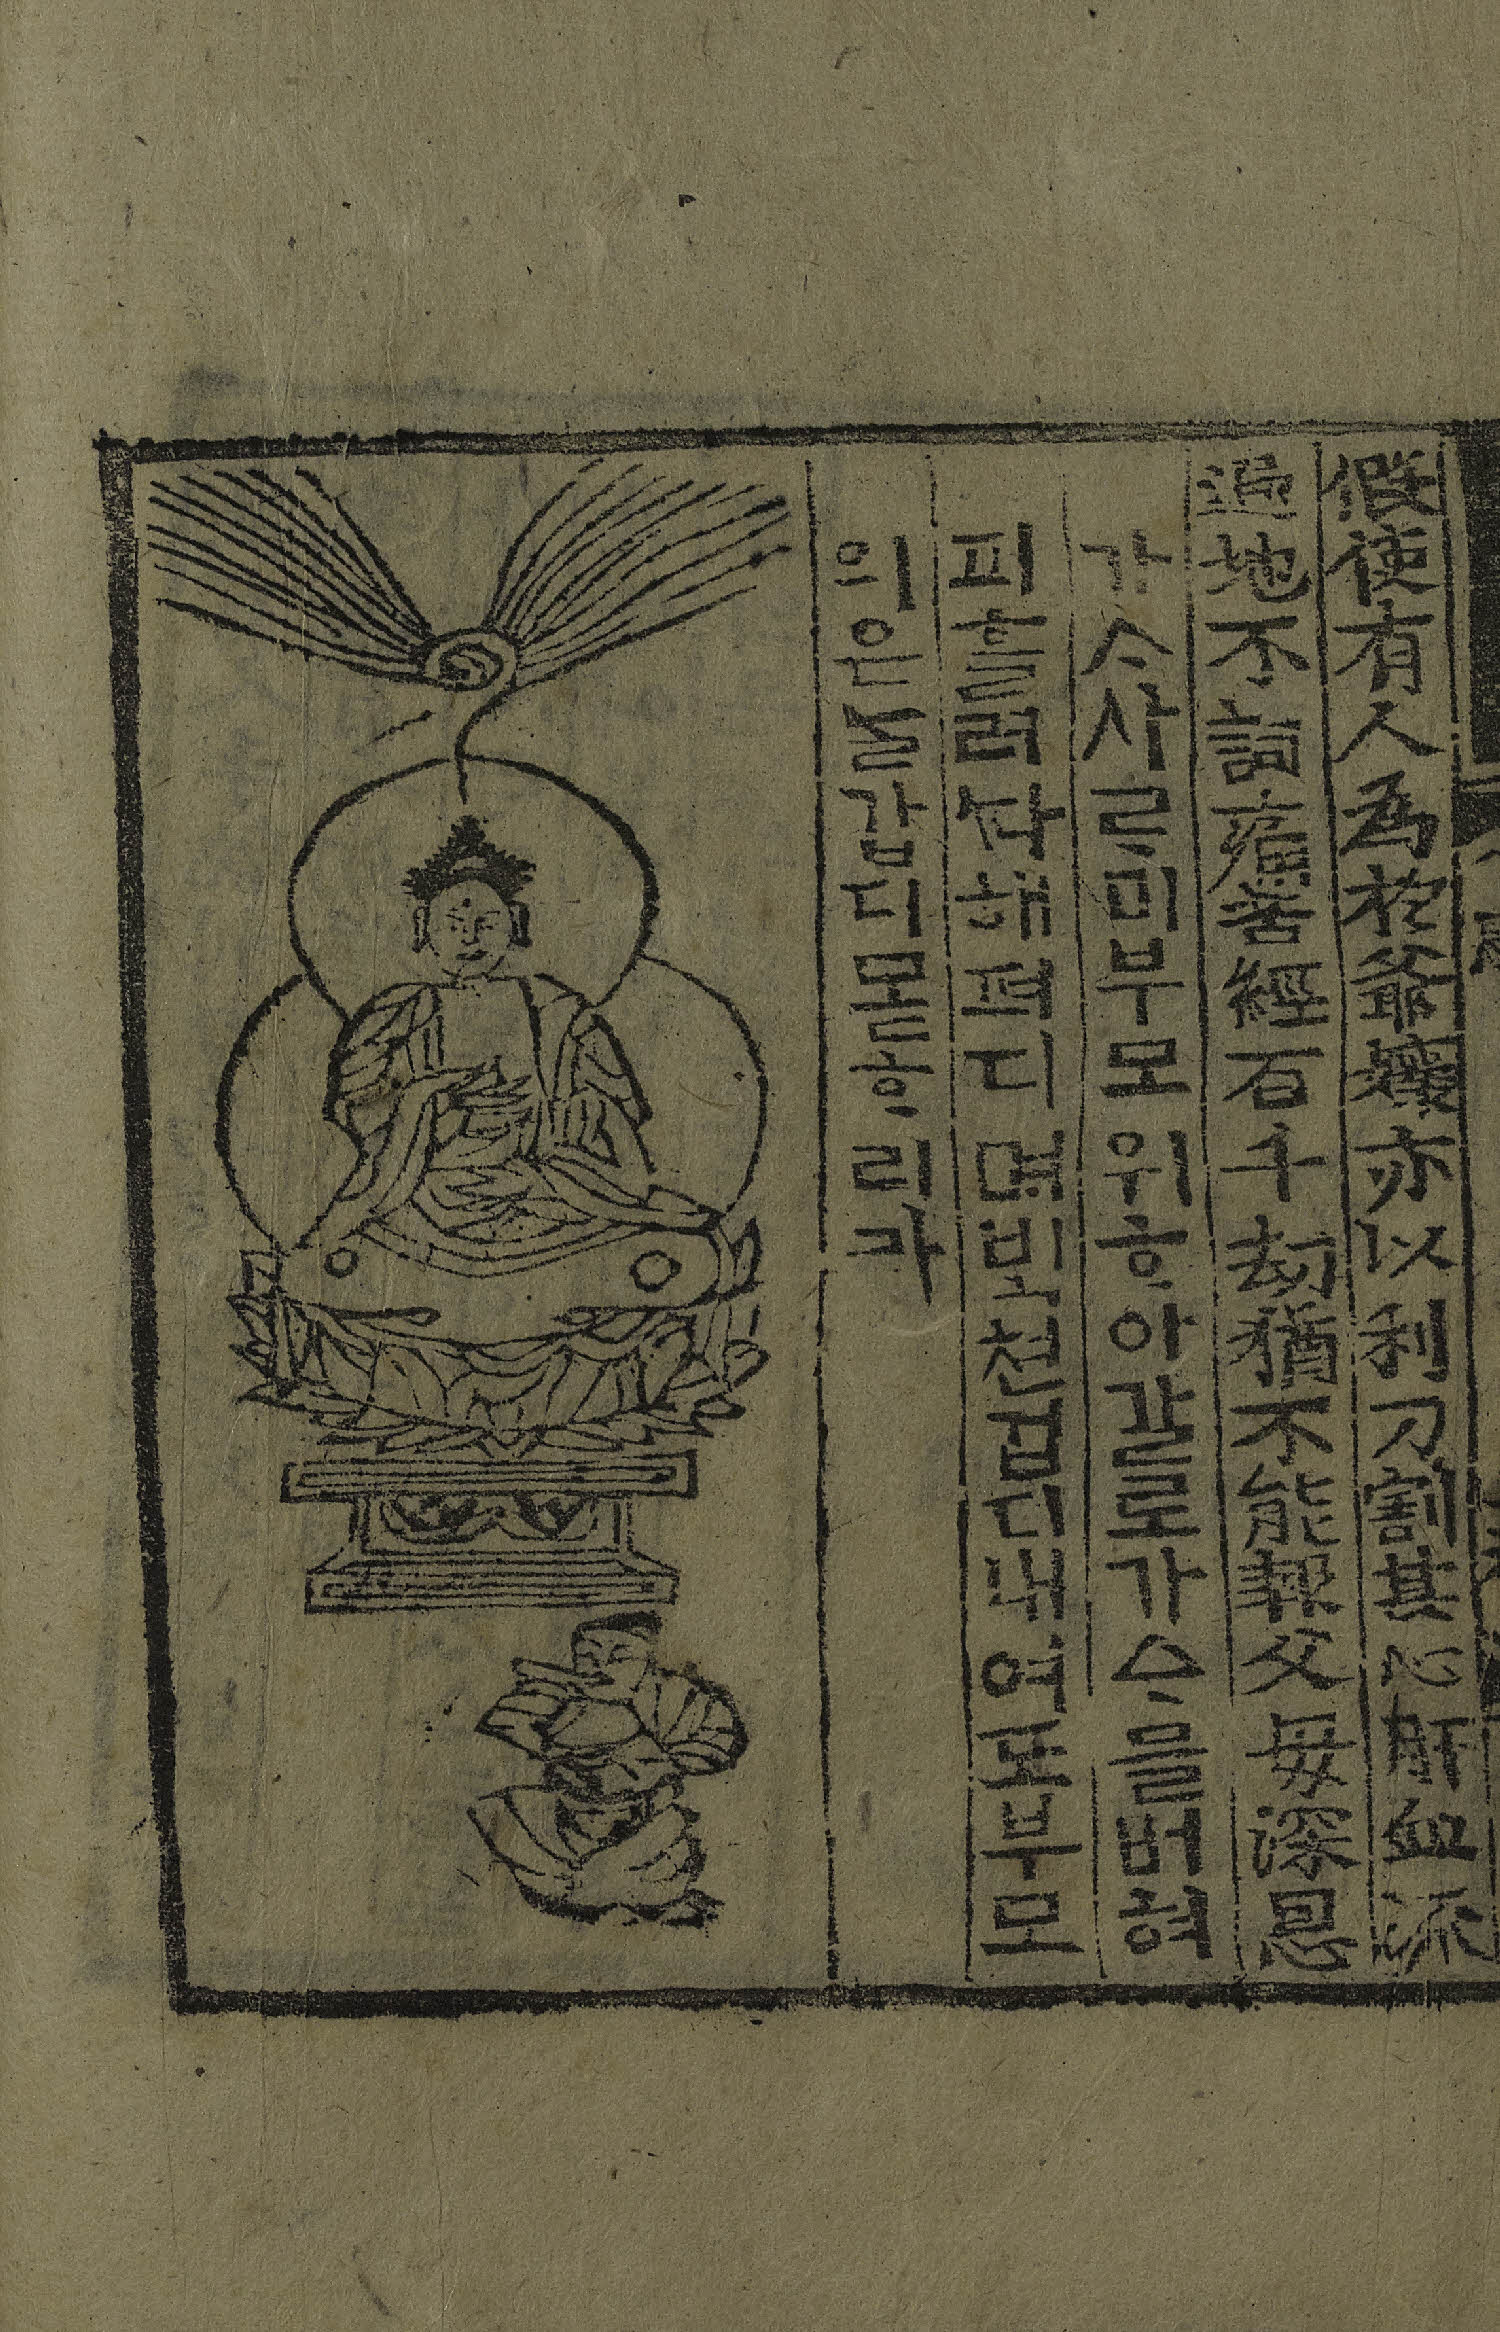 假使有人為於爺孃亦以利刀割其心肝血流
遍地不詞痛苦經百千劫猶不能報父母深恩
가ᄉᆞ사ᄅᆞ미부모위ᄒᆞ야갈로가ᄉᆞᄆᆞᆯ버혀
피흘러ᄯᅡ해펴디며ᄇᆡᆨ쳔겁디내여도부모
의은늘갑디몯ᄒᆞ리라